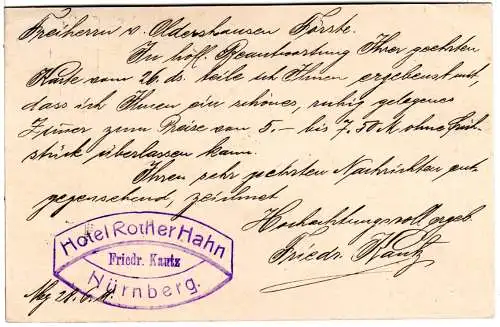 Freiherrn v. Oldershausen Förste.
In höfl. Beantwortung Ihrer geehrten
Karte vom 26. ds. teile ich Ihnen ergebenst mit,
dass ich Ihnen ein schönes, ruhig gelegenes
Zimmer zum Preise von 5.- bis 7,50 M ohne Früh-
stück überlassen kann.
Ihren sehr geehrten Nachrichten ent-
gegensehend, zeichnet
Hochachtungsvoll ergeb.
Friedr. Kautz
Hotel Rother Hahn
Friedr. Kautz
Nürnberg.
Nbg 28. 6.